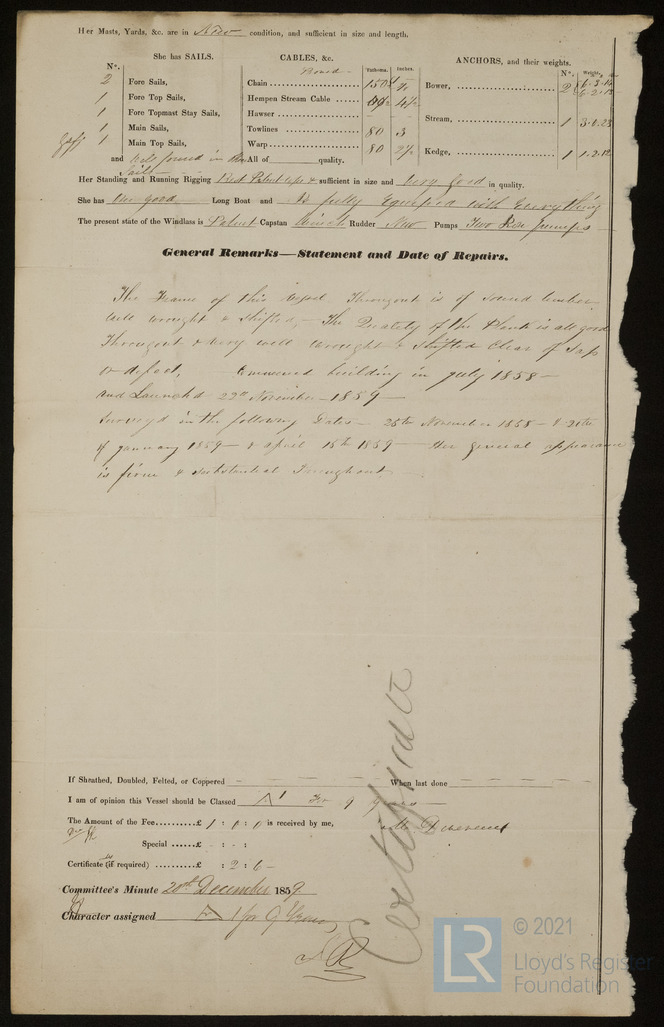 Her Masts, Yards, &c. are in New condition, and sufficient in size and length.
She has SAILS.
CABLES, &c.
ANCHORS, and their weights.
Nº.
Fathoms.
Inches.
Nº.
Weight.
2 Fore Sails,
1 Fore Top Sails,
1 Fore Topmast Stay Sails,
1 Main Sails,
Gaff 1 Main Top Sails,
and Well found in other Sails
Chain 150
Hempen Stream Cable
Hawser
Towlines 80 3
Warp 80 2½
All of quality.
Bower, 2
Stream, 1
Kedge, 1 1.2.12
Her Standing and Running Rigging Best Patent rope & sufficient in size and Very Good in quality.
She has One good Long Boat and Is fully Equipped with Everything
The present state of the Windlass is Patent Capstan Winch Rudder New Pumps Two Iron pumps
General Remarks—Statement and Date of Repairs.
The Frame of this Vessel Throughout is of sound timber
Well wrought & Shifted, – The Quality of the Plank is all good
Throughout & very well wrought & Shifted Clear of Sap
or defect, Commenced building in July 1858 –
and Launched 22nd November – 1859 –
Surveyd in the following Dates – 25th November 1858 – & 20th
of January 1859 – & April 15th 1859 – Her general appearance
is firm & substantial Throughout
If Sheathed, Doubled, Felted, or Coppered
When last done
I am of opinion this Vessel should be Classed A 1 For 9 years –
The Amount of the Fee £ 1 : 0 : 0 is received by me,
Special £ : - : -
Certificate (if required) £ : 2 : 6 –
Committee's Minute 20th December 1859.
Character assigned A 1 for 9 Years
Certificate
© 2021
LR
Lloyd's Register
Foundation